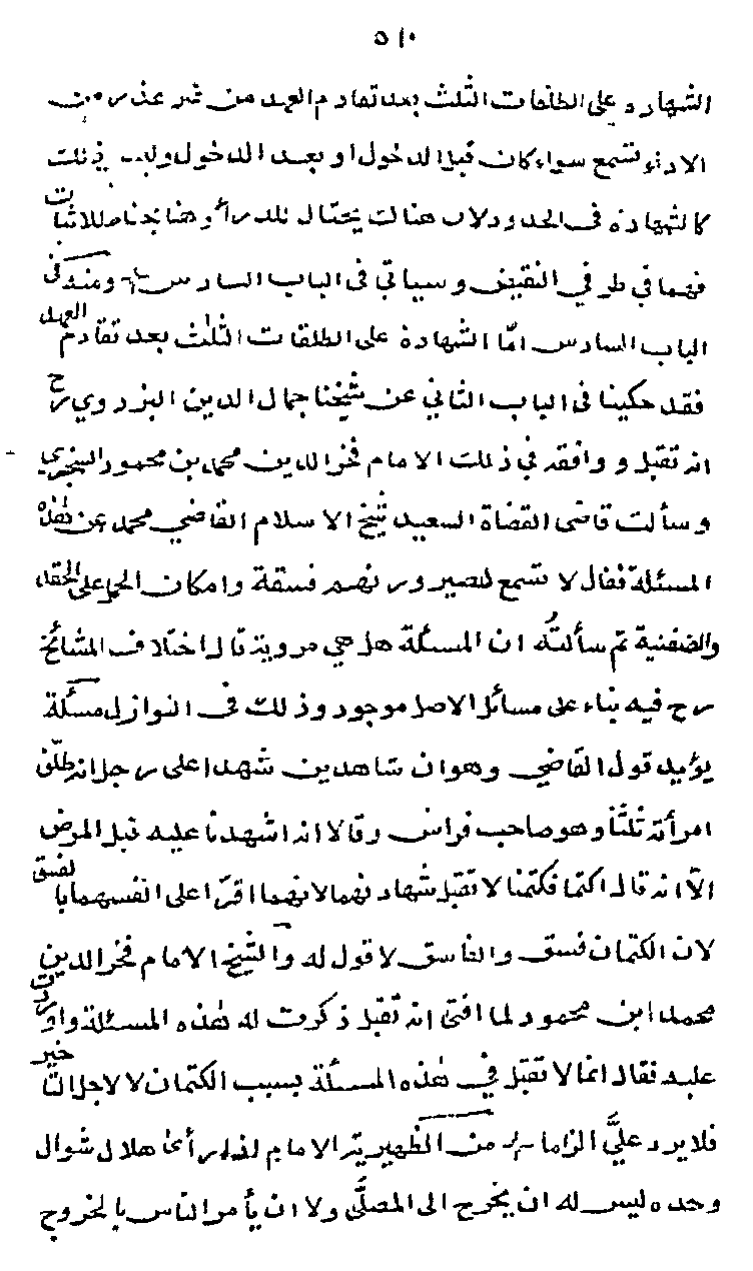 ٥١٠
الشهادة على الطلقات الثلث بعد تقادم العهد من غير عذر من
الاداء تسمع سواء كان قبل الدخول او بعد الدخول وليس ذلك
كالشهادة فى الحدود لان هناك يحتال للدرأ وهنا يحتاط للاثبات
فهما في طرفي النقيض وسيأتي فى الباب السادس ومنه فى
الباب السادس امّا الشهادة على الطلقات الثلث بعد تقادم العهد
فقد حكينا فى الباب الثاني عن شيخنا جمال الدين البزدوي رح
انه تقبل و وافقه في ذلك الامام فخر الدين محمد بن محمود السنجري
وسألت قاضى القضاة السعيد شيخ الاسلام القاضي محمد عن هذه
المسئلة فقال لا تسمع لصيرورتهم فسقة وامكان الحمل على الحقد
والضغينة ثم سألته ان المسئلة هل هي مروية قال اختلاف المشائخ
رح فيه بناء على مسائل الاصل موجود وذلك فى النوازل مسئلة
يؤيد قول القاضي وهو ان شاهدين شهدا على رجل انه طلق
امرأته ثلثا وهو صاحب فراش وقالا انه اشهدنا عليه قبل المرض
الّا انه قال اكتما فكتمنا لا تقبل شهادتهما لانهما اقرّا على انفسهما بالفسق
لان الكتمان فسق والفاسق لا قول له والشيخ الامام فخر الدين
محمد ابن محمود لما افتى انه تقبل ذكرت له هذه المسئلة واوردت
عليه فقال انما لا تقبل في هذه المسئلة بسبب الكتمان لا لاجل التاخير
فلا يرد عليَّ الزاما من الظهيرية الامام اذا رأى هلال شوال
وحده ليس له ان يخرج الى المصلّى ولا ان يأمر الناس بالخروج